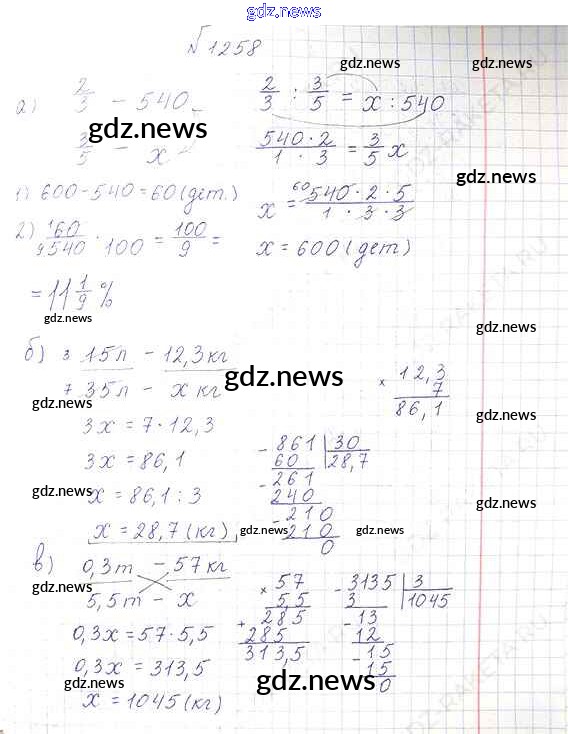 gdz.news
√ 1258
gdz.news
а) 2/3 – 540   2/3 : 3/5 = x : 540
gdz.news   gdz.news
3/5 – x   540 · 2 / 1 · 3 = 3/5 x
gdz.news
1) 600 – 540 = 60 (дет.)   x = 60 540 · 2 · 5 / 1 · 3 · 3
2) 1 60 / 9 540 · 100 = 100/9 =   x = 600 (дет)
= 11 1/9 %
gdz.news   gdz.news
б) 3 15л – 12,3кг
7 35л – x кг   × 12,3
gdz.news   7
gdz.news   86,1   gdz.news
3x = 7 · 12,3
3x = 86,1   – 861 | 30
60   28,7
– 261
gdz.news   x = 86,1 : 3   240   gdz.news
– 210
x = 28,7 (кг)   gdz.news   210   gdz.news
0
в) 0,3т – 57кг
5,5т – x   × 57   – 3135 | 3
gdz.news   5,5   3   1045   gdz.news
0,3x = 57 · 5,5   + 285   – 13
285   12
0,3x = 313,5   313,5   – 15
gdz.news   gdz.news   15   gdz.news
0
x = 1045 (кг)